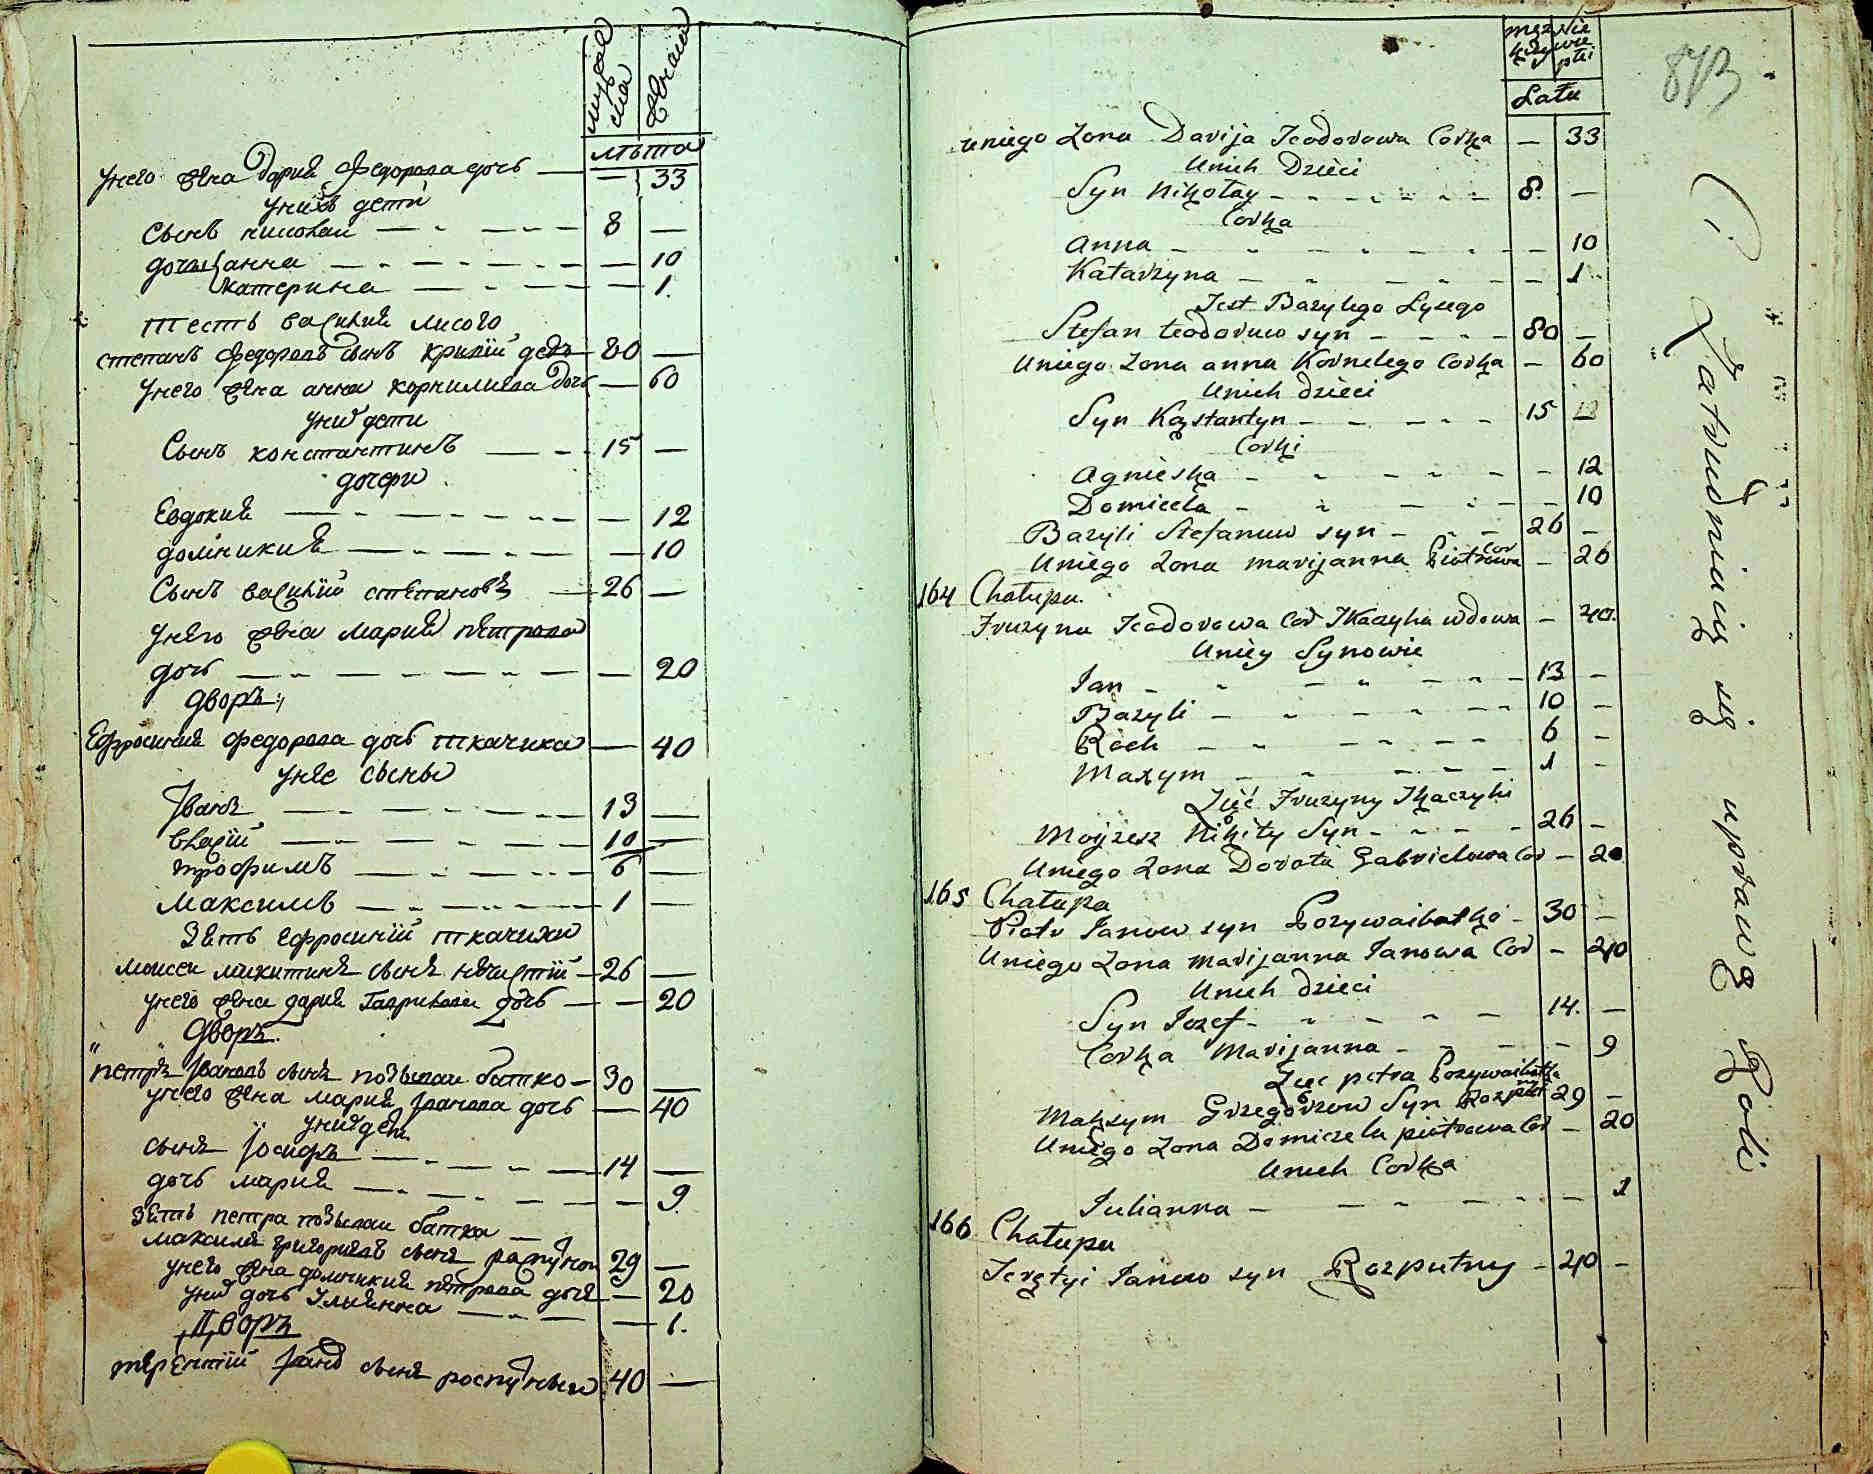 мужеска
женска
лѣта
унего жена дария федорова дочь — 33
унихъ дети
сынъ николаи 8 —
дочьки анна — 10
катерина — 1.
тесть василия лисого
степанъ федоровъ сынъ кривїй дедъ 80 —
унего жена анна корнилиева дочь — 60
уних дети
Сынъ константинъ 15 —
дочери
Евдокия — 12
домникия — 10
Сынъ василїй степановъ 26 —
унего жена мария петрова
дочь — 20
дворъ
Ефросиния федорова дочь ткачиха — 40
унее сыны
Іванъ 13 —
василїй 10 —
трофимъ 6 —
максимъ 1 —
зять ефросинїи ткачихи
моисеи микитинъ сынъ нечистїй 26 —
унего жена дария Гаврилова дочь — 20
дворъ
петръ Івановъ сынъ позываи батко 30 —
унего жена мария Іванова дочь — 40
уних дети
сынъ Іосифъ 14 —
дочь мария — 9.
зять петра позываи батка
максимъ григориевъ сынъ распутнои 29 —
унего жена домникия петрова дочь — 20
уних дочь Улиянна — 1.
Дворъ
терентїй Іванов сынъ роспутныи 40 —
męz kzy Nie wie ptei
Łatu
873
uniego Zona Darija Teodorowa Corka — 33
Unich Dzieci
Syn Nikołay 8. —
Corka
Anna — 10
Katarzyna — 1
Test Bazylego Łysego
Stefan teodoruw syn 80 —
Uniego Zona anna Kornelego Corka — 60
Unich dzieci
Syn Kąstantyn 15
Corki
Agnieska — 12
Domicela — 10
Bazyli Stefanuw syn 26 —
Uniego Zona marijanna Piotrowa Cor — 20
164 Chałupa
Fruzyna Teodorowa Cor Tkaczyka wdowa — 40.
Uniey Synowie
Jan 13 —
Bazyli 10 —
Roch 6 —
Maxym 1 —
Zięć Fruzyny Tkaczyki
Moyzesz Nikity Syn 26 —
Uniego Zona Dorota Gabrielowa Cor — 20
165 Chałupa
Piotr Janow syn Pozywaibatko 30 —
Uniego Zona marijanna Janowa Cor — 40
Unich dzieci
Syn Jozef 14. —
Corka Marijanna — 9
Zięc petra Pozywaibatka
Maksym Grzegorzow Syn Rozputni 29 —
Uniego Zona Domiczela piotrowa Cor — 20
Unich Corka
Julianna — 1
166 Chałupa
Teretyi Janow syn Rozputny 40 —
C. Zatrudniaią się uprawą Roli